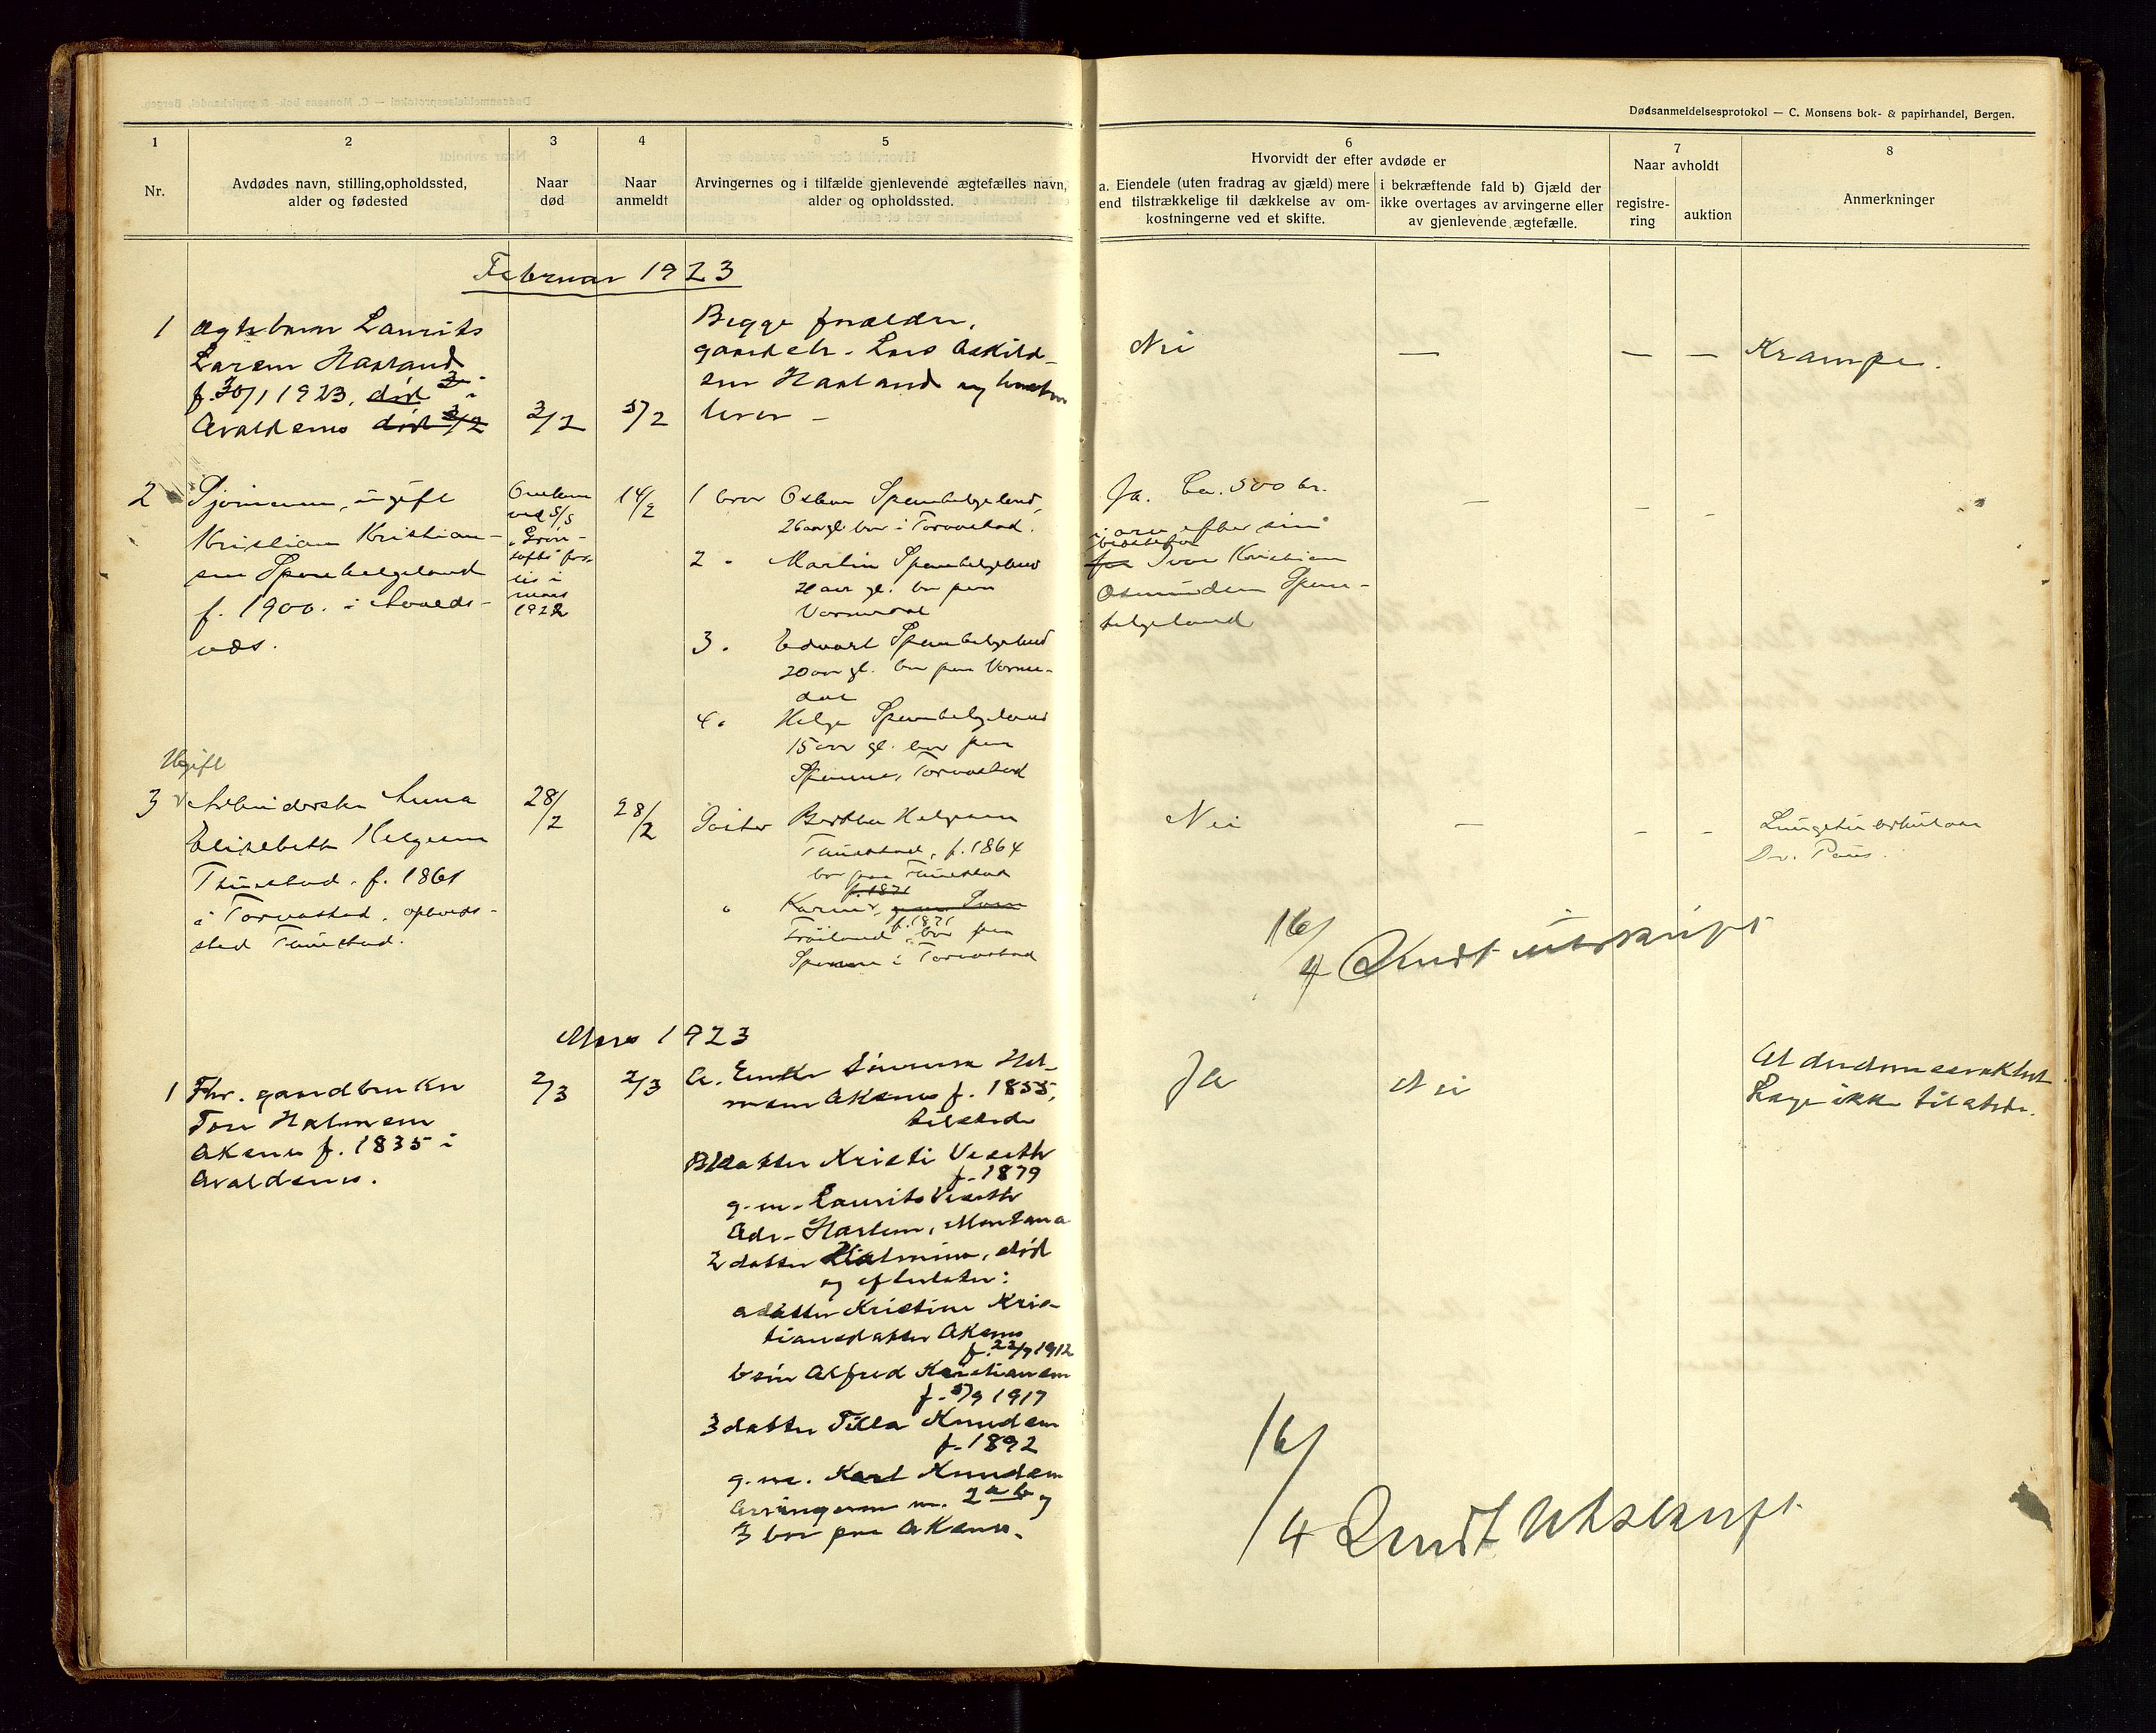 Dødsanmeldelsesprotokol — C. Monsens bok- & papirhandel, Bergen.
1
Nr.
2
Avdødes navn, stilling, opholdssted,
alder og fødested
3
Naar
død
4
Naar
anmeldt
5
Arvingernes og i tilfælde gjenlevende ægtefælles navn,
alder og opholdssted.
6
Hvorvidt der efter avdøde er
a. Eiendele (uten fradrag av gjæld) mere
end tilstrækkelige til dækkelse av om-
kostningerne ved et skifte.
i bekræftende fald b) Gjæld der
ikke overtages av arvingerne eller
av gjenlevende ægtefælle.
7
Naar avholdt
registre-
ring
auktion
8
Anmerkninger
Februar 1923
1
Ægtebarn Laurits
Larsen Haaland
f. 30/1 1923, død 3 i
Avaldsnes død 3/2
3/2
5/2
Begge forældre,
gaardbr. Lars Askild-
sen Haaland og hustru
lever -
Nei
—
—
—
Krampe.
2
Sjømann, ugift
Kristian Kristian-
sen Spannhelgeland
f. 1900. i Avalds-
næs.
Omkom
ved S/S
"Grøn-
tofts" for-
lis i
mars
1922
14/2
1 bror Oskar Spannhelgeland,
26 aar gl. bor i Torvastad.
2 " Martin Spannhelgeland
aar gl. bor paa
Vormedal
3 " Edvart Spannhelgeland
20 aar gl. bor paa Vorme-
dal
4 " Helge Spannhelgeland
15 aar gl. bor paa
Spanne, Torvastad
Ja. Ca. 500 kr.
i arv efter sin
bestefar
far Iver Kristian
Osmundsen Spann-
helgeland
—
—
—
Ugift
3
Arbeiderske Anna
Elisebeth Helgesen
Tuastad. f. 1861
i Torvastad. opholds-
sted Tuastad.
28/2
28/2
Søster Bertha Helgesen
Tuastad, f. 1864
bor paa Tuastad
f. 1871
" Karine,
f. 1871
bor paa
Spanne i Torvastad
Nei
—
—
—
Lungetuberkulose
Dr. Paus.
16/4 Sendt utskrift
Mars 1923
1
Fhv. gaardbruker
Tore Halvorsen
Akenes f. 1835 i
Avaldsnes.
2/3
2/3
A. Enke
Akenes f. 1855,
tilstede
B 1 datter Kristi Veseth
f. 1879
g. m. Laurits Veseth
Adr. Harlem, Montana
2 datter Halvine, død
og efterlater:
a datter Kristine Kris-
tiansdatter Aksnes
f. 22/9 1912
b søn Alfred Kristiansen
f. 5/9 1917
3 datter Tilla Knudsen
f. 1892
g. m. Karl Knudsen
Arvingerne nr. 2 a b og
3 bor paa Aksnes.
Ja
Nei
Alderdomssvakhet
Læge ikke tilstede.
16/4 Sendt Utskrift